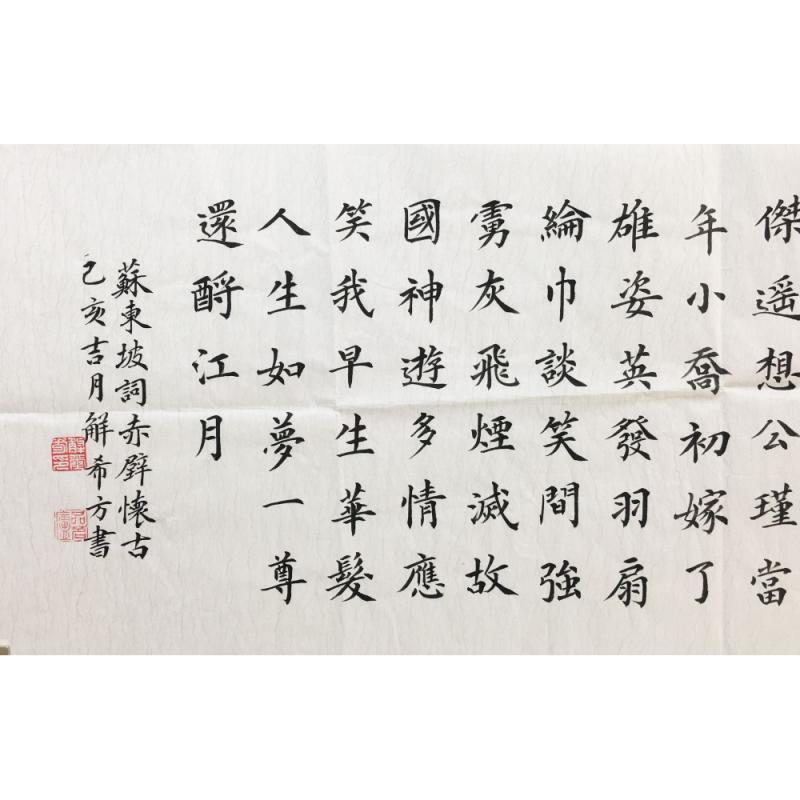 傑遥想公瑾當
年小喬初嫁了
雄姿英發羽扇
綸巾談笑間強
虜灰飛煙滅故
國神遊多情應
笑我早生華髮
人生如夢一尊
還酹江月
蘇東坡詞赤壁懷古
己亥吉月解希方書